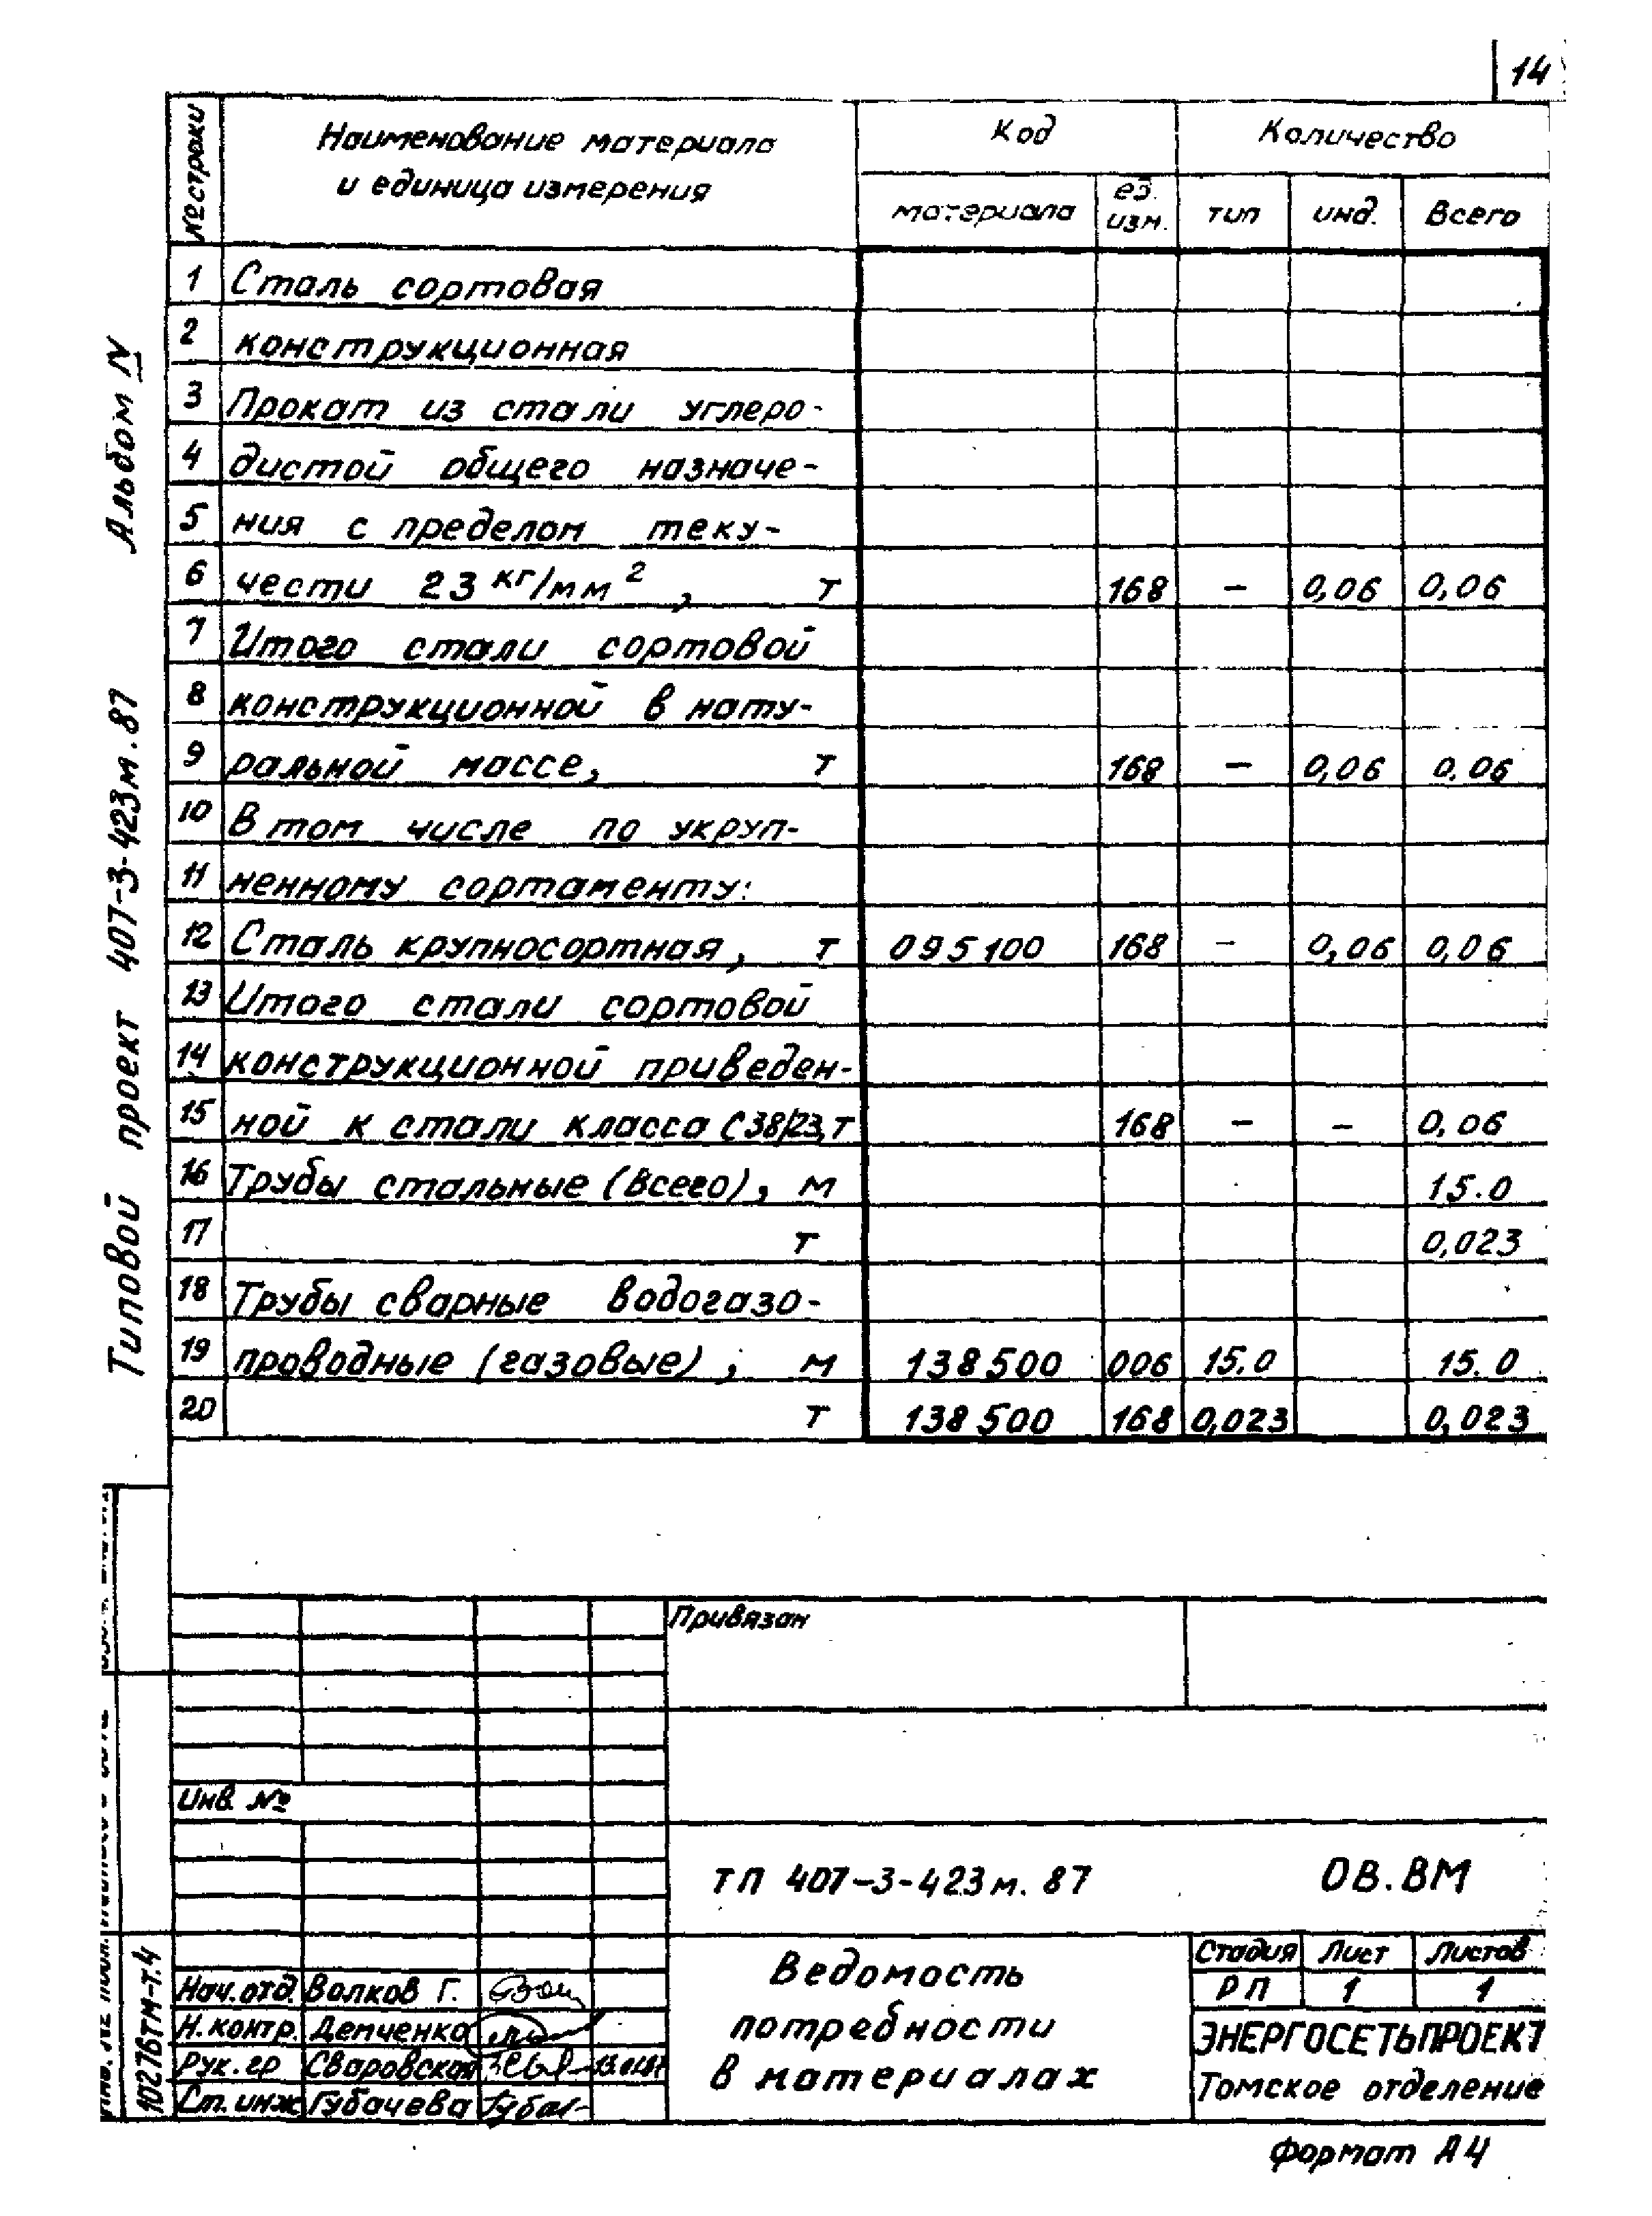 14
№ строки
Наименование материала
и единица измерения
Код
Количество
материала
ед.
изм.
тип
инд.
Всего
1 Сталь сортовая
2 конструкционная
3 Прокат из стали углеро-
4 дистой общего назначе-
5 ния с пределом теку-
6 чести 23 кг/мм², т 168 – 0,06 0,06
7 Итого стали сортовой
8 конструкционной в нату-
9 ральной массе, т 168 – 0,06 0.06
10 В том числе по укруп-
11 ненному сортаменту:
12 Сталь крупносортная, т 095100 168 – 0,06 0,06
13 Итого стали сортовой
14 конструкционной приведен-
15 ной к стали класса С38/23, т 168 – – 0,06
16 Трубы стальные (всего), м 15.0
17 т 0,023
18 Трубы сварные водогазо-
19 проводные (газовые), м 138500 006 15.0 15.0
20 т 138500 168 0,023 0,023
Типовой проект 407-3-423м.87 Альбом IV
Привязан
Инв. №
ТП 407-3-423м. 87 ОВ.ВМ
Ведомость
потребности
в материалах
Стадия Лист Листов
РП 1 1
ЭНЕРГОСЕТЬПРОЕКТ
Томское отделение
Нач.отд. Волков Г.
Н.контр. Демченко
Рук.гр Сваровская
Ст.инж Губачева
10276тм-т.4
Формат А4